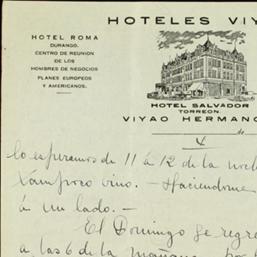 HOTELES VIY
HOTEL ROMA
DURANGO.
CENTRO DE REUNION
DE LOS
HOMBRES DE NEGOCIOS
PLANES EUROPEOS
Y AMERICANOS.
HOTEL SALVADOR
TORREON.
VIYAO HERMANO
de
lo esperamos de 11 á 12 de la noch
tampoco vino. — Haciendome
á un lado. —
El Domingo se regre
a las 6 de la mañana